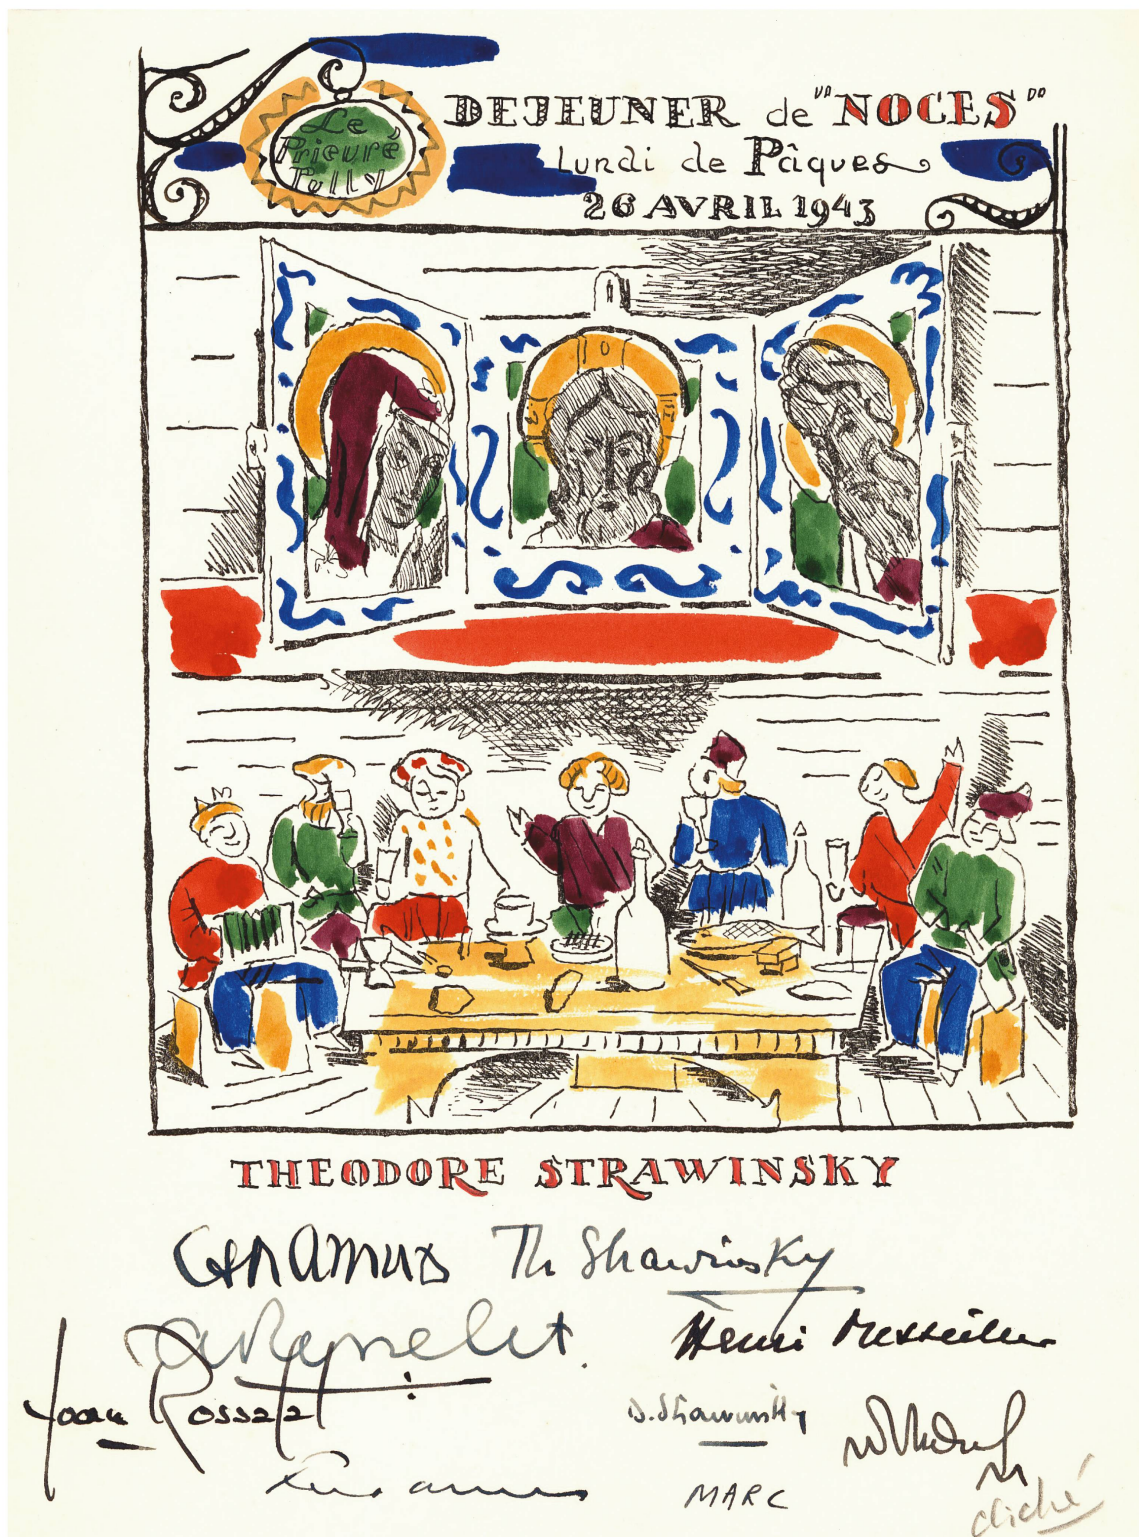 Le
Prieuré
Pully
DEJEUNER de "NOCES"
Lundi de Pâques
26 AVRIL 1943
THEODORE STRAWINSKY
C F Ramuz Th Strawinsky
Henri
Rossel
D. Strawinsky
MARC
cliché